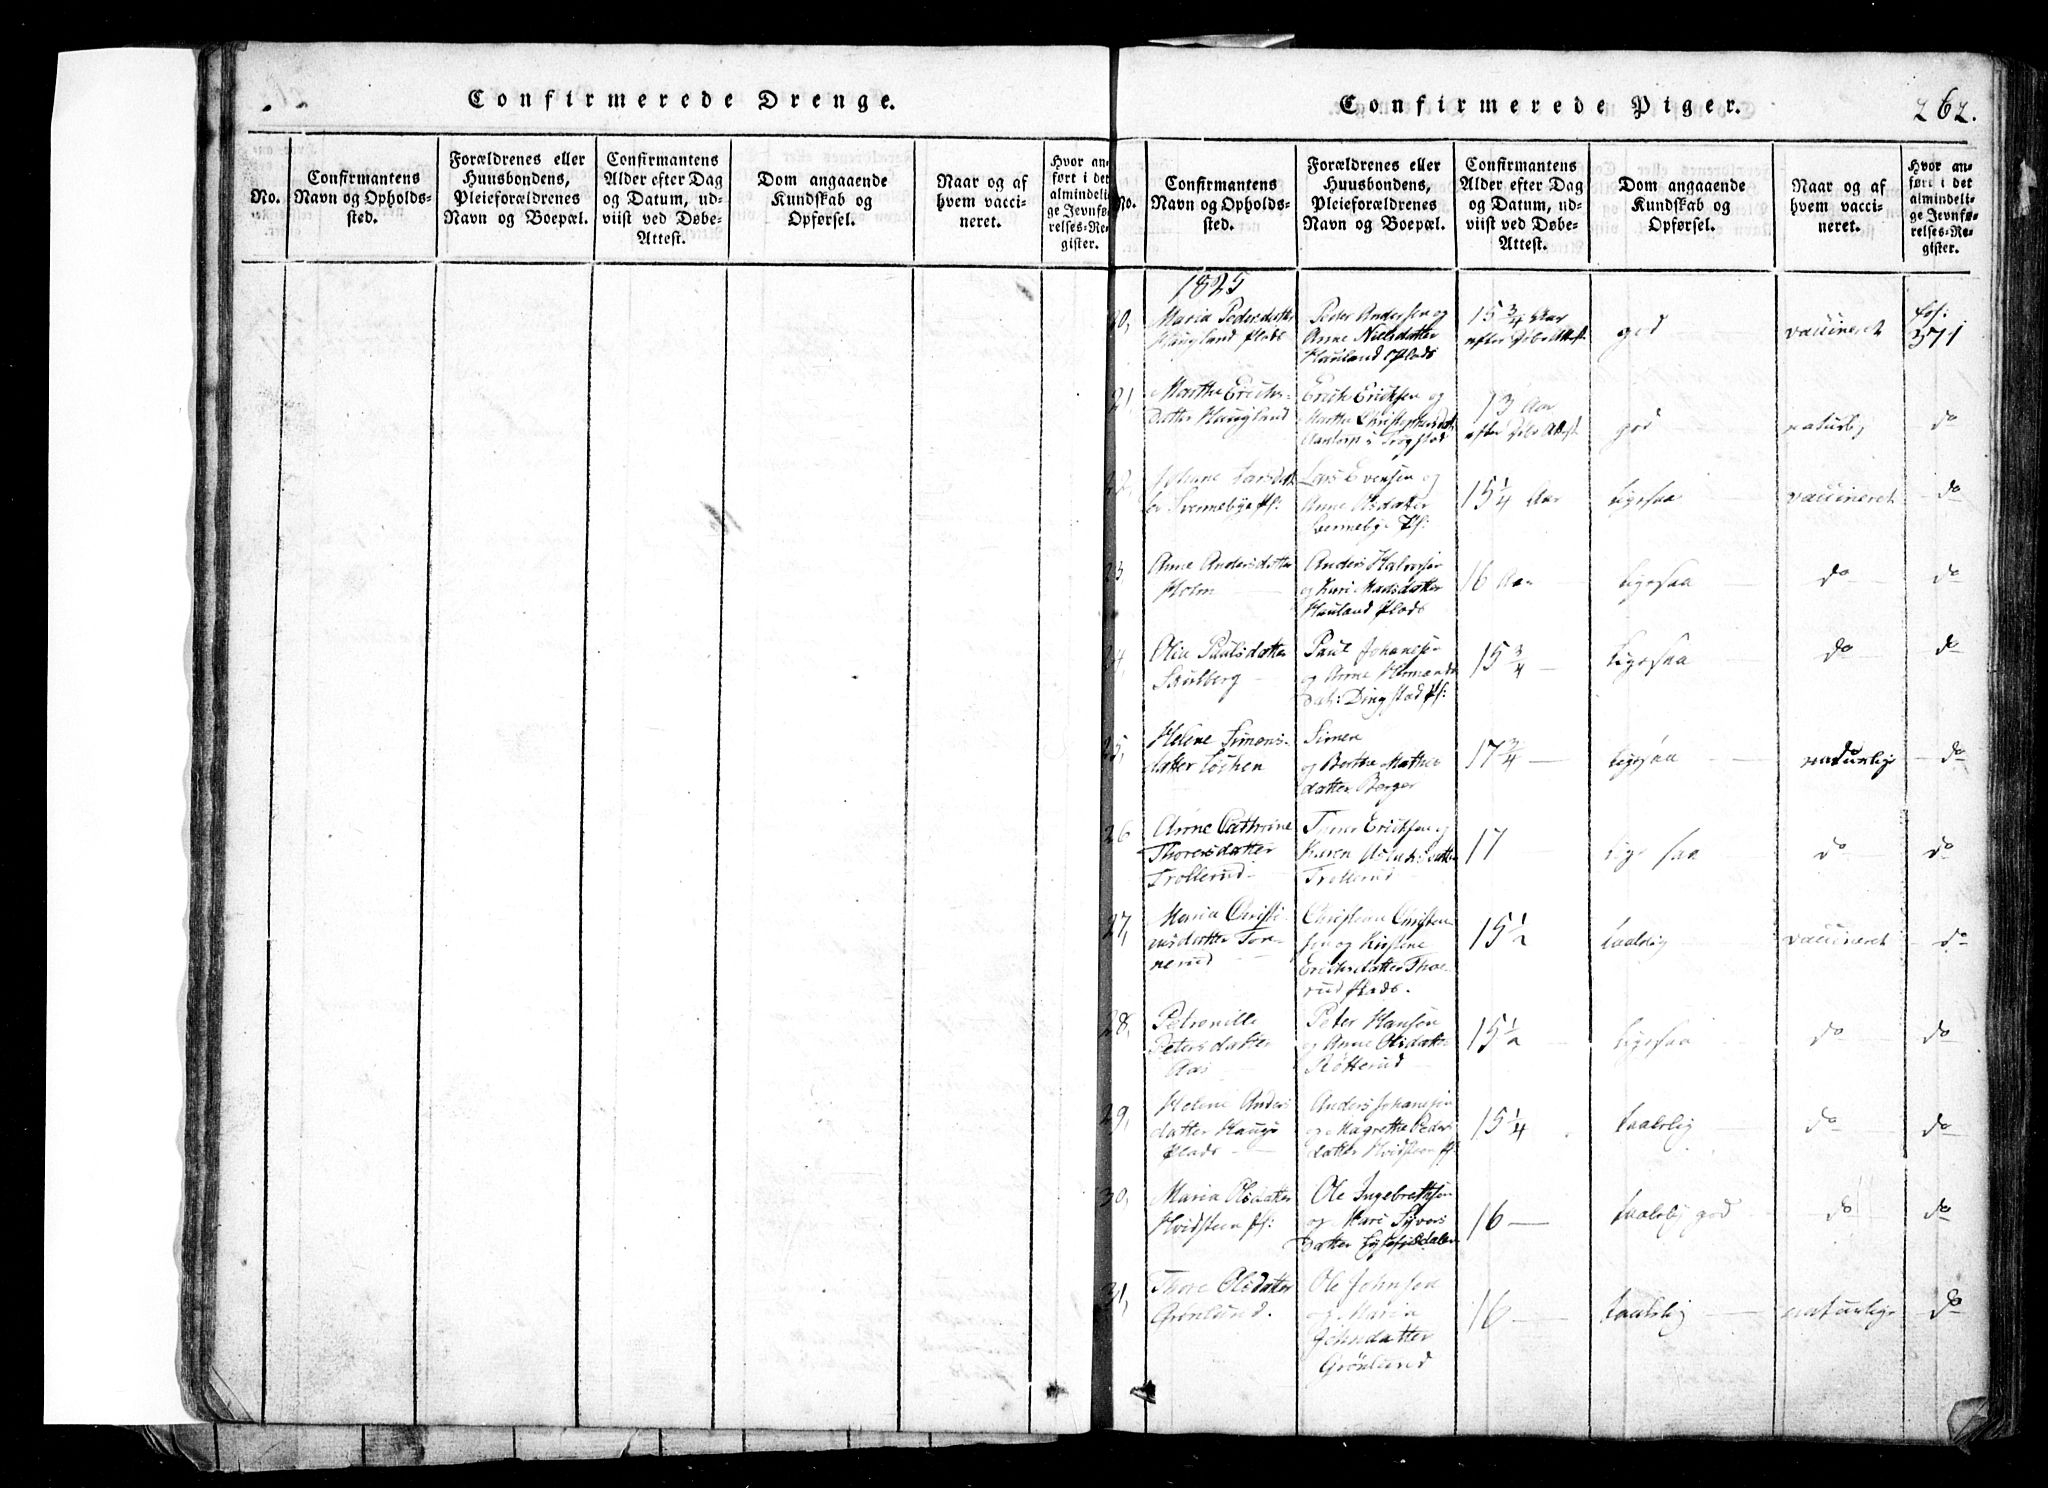 Confirmerede Drenge.
No.
Confirmantens
Navn og Opholds-
sted.
Forældrenes eller
Huusbondens,
Pleieforældrenes
Navn og Boepæl.
Confirmantens
Alder efter Dag
og Datum, ud-
viist ved Døbe-
Attest.
Dom angaaende
Kundskab og
Opførsel.
Naar og af
hvem vacci-
neret.
Hvor an-
ført i det
almindeli-
ge Jevnfø-
relses-Re-
gister.
Confirmerede Piger.
262.
No.
Confirmantens
Navn og Opholds-
sted.
Forældrenes eller
Huusbondens,
Pleieforældrenes
Navn og Boepæl.
Confirmantens
Alder efter Dag
og Datum, ud-
viist ved Døbe-
Attest.
Dom angaaende
Kundskab og
Opførsel.
Naar og af
hvem vacci-
neret.
Hvor an-
ført i det
almindeli-
ge Jevnfø-
relses-Re-
gister.
1825
20,
Maria Pedersdatter
Haugland Plads
Peder Andersen og
Anne Nielsdatter
Hauland Plads
15 3/4 Aar
efter Døbe Attest
god
vaccineret
fol:
371
21,
Marthe Erichs-
datter Haugland
Erich Ericksen og
Marthe Christophersdat
i Trøgstad
13 Aar
efter Døbe Attest
god
naturlig
do
22,
Johanne Larsdat
ter Svennebye Pl:
Lars Evensen og
Anne Olsdatter
Svennebye Pl:
15 1/4 Aar
ligesaa
vaccineret
do
23,
Anne Andersdatter
Holm
Anders Halvorsen
og Kari Madsdatter
Hauland Plads
16 Aar
ligesaa
do
do
24,
Olia Paulsdatter
Skulberg
Paul Johannes
og Anne Hermands
dat: Dingstad Pl:
15 3/4
ligesaa
do
do
25,
Helene Simens-
datter Løchen
Simen
og Berthe Mathis
datter Berger
17 3/4
ligesaa
do
naturlige
do
26
Anne Cathrine
Thoresdatter
Trollerud
Tore Ericksen og
Karen Aslaksdatter
Trollerud
17
lige saa
do
do
27,
Maria Christi-
ansdatter Tor-
nerud
Christian Christen
sen og Kirstine
Erichsdatter Thor-
rud Plads.
15 1/2
taalelig
vaccineret
do
28,
Petronille
Petersdatter
Aas
Peter Hansen
og Anne Olsdatter
Røtterud
15 1/2
ligesaa
do
do
29,
Helene Anders
datter Haugs
Plads
Anders Johannesen
og Magrethe Peders
datter Hvidsteen Pl:
15 1/4
taalelig
do
do
30,
Maria Olsdatter
Hvidsteen Pl:
Ole Ingebrethsen
og Kari Syvers
datter
16
taalelig god
do
do
31,
Thore Olsdatter
Grønlund.
Ole Johnsen
og Maria
Johnsdatter
Grønlund
16
taalelig
naturlige
do